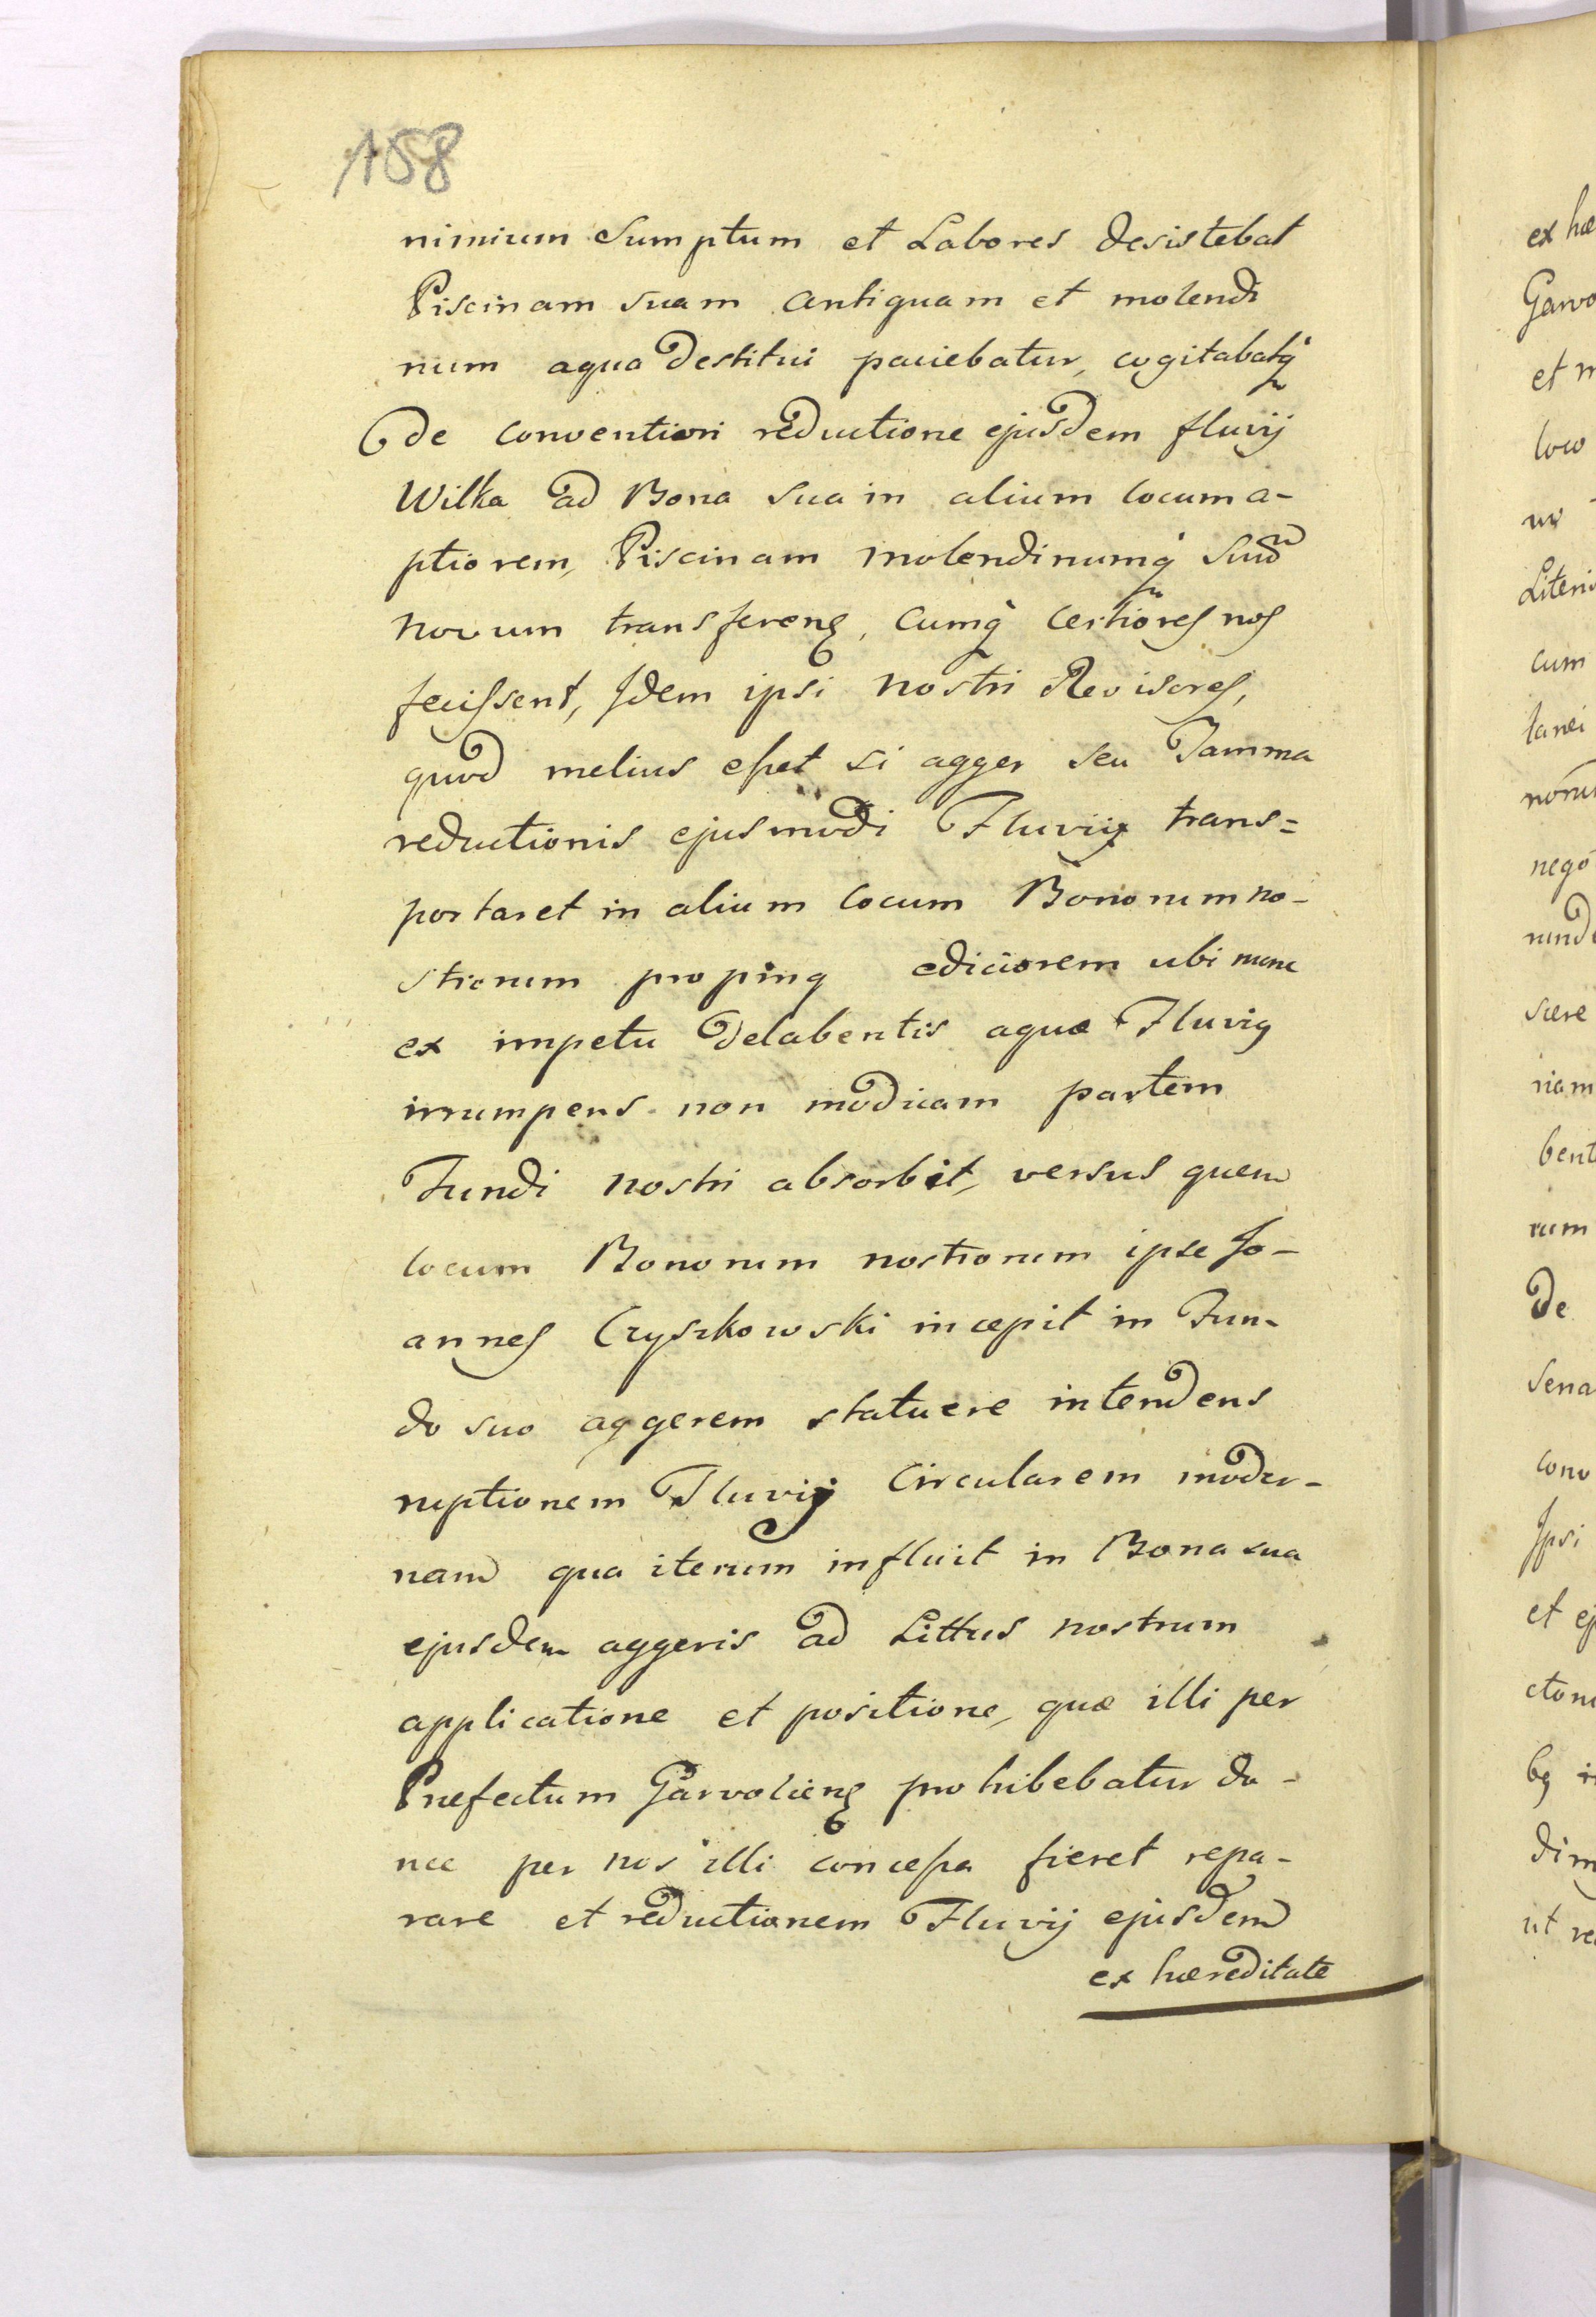 158
nimium Sumptum et Labores desistebat
Piscinam suam antiquam et molendi
num aqua destitui paciebatur, cogitabatq́
de conventiori reductione ejusdem fluvij
Wilka ad Bona sua in alium locum a-
ptiorem, Piscinam molendinumq́ suũ
novum transferens, cumq́ certiores nos
fecissent, Idem ipsi nostri Revisores,
quod melius esset si agger seu Tamma
reductionis ejusmodi Fluvij trans=
portaret in alium locum Bonorum no-
strorum propinq ediciorem ubi nunc
ex impetu delabentis aquæ Fluvig
irrumpens non modicam partem
Fundi nostri absorbit, versus quem
locum Bonorum nostrorum ipse Jo-
annes Cryszkowski incepit in Fun-
do suo aggerem statuere intendens
ruptionem Fluvij Circularem moder-
nam qua iterum influit in Bona sua
ejusdem aggeris ad Littus nostrum
applicatione et positione, quæ illi per
Præfectum Garvoliens prohibebatur do-
nec per nos illi concessa fieret repa-
rare et reductionem Fluvij ejusdem
ex hæreditate
ex hæ
Garvo
et m
loco
Literis
cum
tanei
nego
sære
riam
bent
rum
de
Sena
conv
Ipsi
et ej
dim
ut re